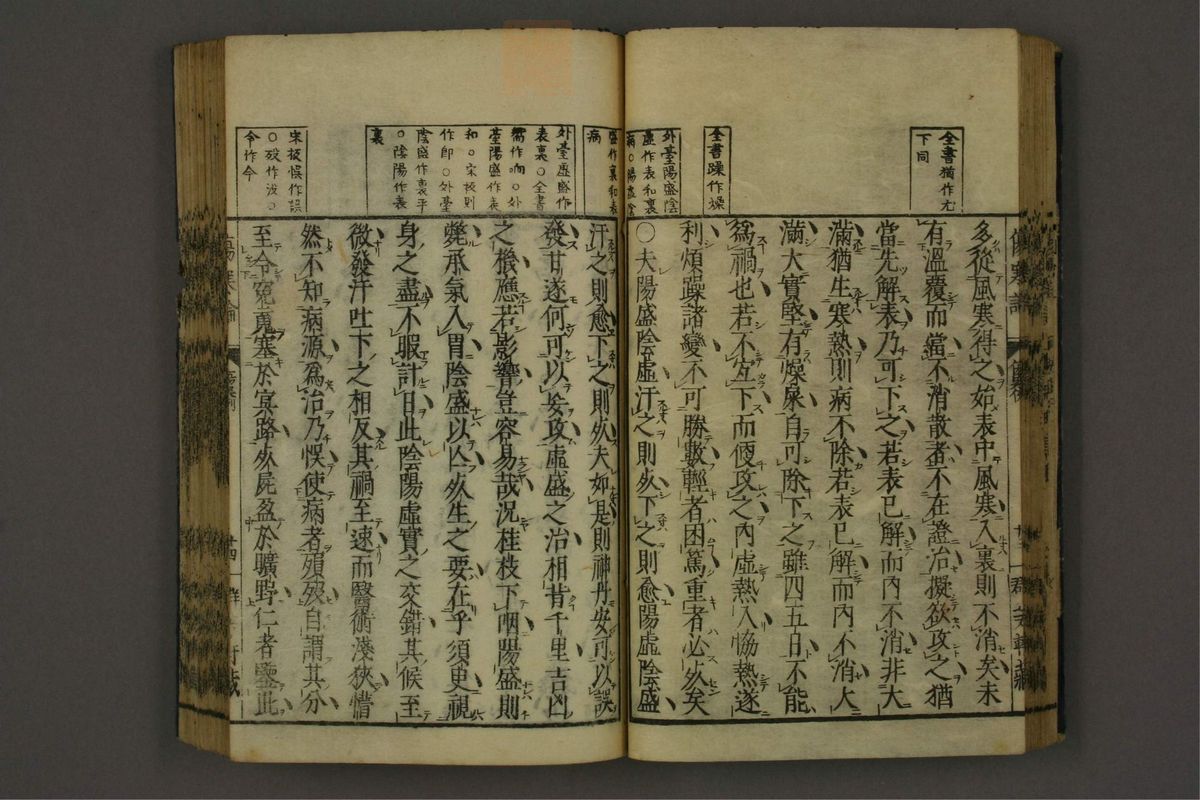 全書猶作尤
下同
全書躁作燥
外臺陽盛陰
虛作表和裏
病○陽虛陰
多從風寒得之始表中風寒入裏則不消矣未
有溫覆而當不消散者不在證治擬欲攻之猶
當先解表乃可下之若表已解而內不消非大
滿猶生寒熱則病不除若表已解而內不消大
滿大實堅有燥屎自可除下之雖四五日不能
爲禍也若不宜下而便攻之內虛熱入恊熱遂
利煩躁諸變不可勝數輕者困篤重者必死矣
○夫陽盛陰虛汗之則死下之則愈陽虛陰盛
盛作裏和表
病
外臺虛盛作
表裏○全書
嚮作向○外
臺陽盛作表
和○宋板則
作即○外臺
陰盛作裏平
○陰陽作表
裏
宋板悞作誤
○歿作沒○
令作今
汗之則愈下之則死夫如是則神丹安可以誤
發甘遂何可以妄攻虛盛之治相背千里吉凶
之機應若影響豈容易哉況桂枝下咽陽盛則
斃承氣入胃陰盛以亡死生之要在乎須臾視
身之盡不暇計日此陰陽虛實之交錯其候至
微發汗吐下之相反其禍至速而醫術淺狹懵
然不知病源爲治乃悞使病者殞歿自謂其分
至令冤魂塞於冥路死屍盈於曠野仁者鑒此
傷寒論